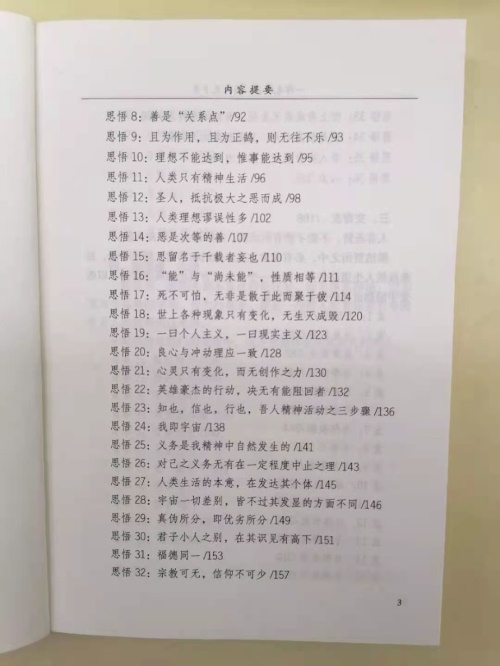 内容提要
思悟 8：善是“关系点”/92
思悟 9：且为作用，且为正鹄，则无往不乐/93
思悟 10：理想不能达到，惟事能达到/95
思悟 11：人类只有精神生活/96
思悟 12：圣人，抵抗极大之恶而成/98
思悟 13：人类理想谬误性多/102
思悟 14：恶是次等的善/107
思悟 15：思留名于千载者妄也/110
思悟 16：“能”与“尚未能”，性质相等/111
思悟 17：死不可怕，无非是散于此而聚于彼/114
思悟 18：世上各种现象只有变化，无生灭成毁/120
思悟 19：一曰个人主义，一曰现实主义/123
思悟 20：良心与冲动理应一致/128
思悟 21：心灵只有变化，而无创作之力/130
思悟 22：英雄豪杰的行动，决无有能阻回者/132
思悟 23：知也，信也，行也，吾人精神活动之三步骤/136
思悟 24：我即宇宙/138
思悟 25：义务是我精神中自然发生的/141
思悟 26：对己之义务无有在一定程度中止之理/143
思悟 27：人类生活的本意，在发达其个体/145
思悟 28：宇宙一切差别，皆不过其发显的方面不同/146
思悟 29：真伪所分，即优劣所分/149
思悟 30：君子小人之别，在其识见有高下/151
思悟 31：福德同一/153
思悟 32：宗教可无，信仰不可少/157
3